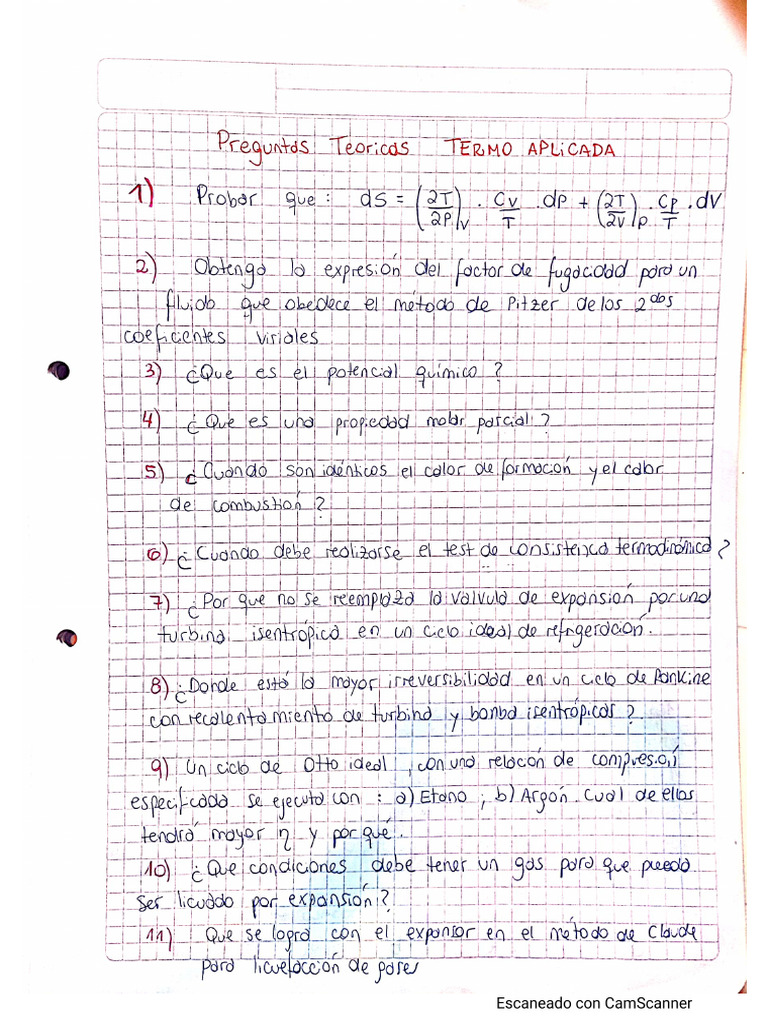 Preguntas Teoricas TERMO APLICADA
1) Probar que : dS = (∂T/∂P)_V . Cv/T . dP + (∂T/∂V)_P . Cp/T . dV
2) Obtenga la expresión del factor de fugacidad para un
fluido que obedece el método de Pitzer de los 2dos
coeficientes viriales
3) ¿Que es el potencial químico ?
4) ¿Que es una propiedad molar parcial ?
5) ¿Cuando son idénticos el calor de formación y el calor
de combustión ?
6) ¿Cuando debe realizarse el test de consistencia termodinámica ?
7) ¿Por que no se reemplaza la válvula de expansión por una
turbina isentrópica en un ciclo ideal de refrigeración.
8) ¿Donde está la mayor irreversibilidad en un ciclo de Rankine
con recalentamiento de turbina y bomba isentrópicas ?
9) Un ciclo de Otto ideal , con una relación de compresión
especificada se ejecuta con : a) Etano , b) Argón. Cual de ellos
tendrá mayor η y por qué .
10) ¿Que condiciones debe tener un gas para que pueda
ser licuado por expansión ?
11) Que se logra con el expansor en el método de Claude
para licuefacción de gases
Escaneado con CamScanner